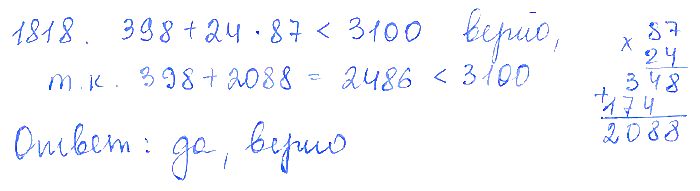 1818. 398 + 24 · 87 < 3100 верно,
т.к. 398 + 2088 = 2486 < 3100
Ответ: да, верно
× 87
24
348
+ 174
2088